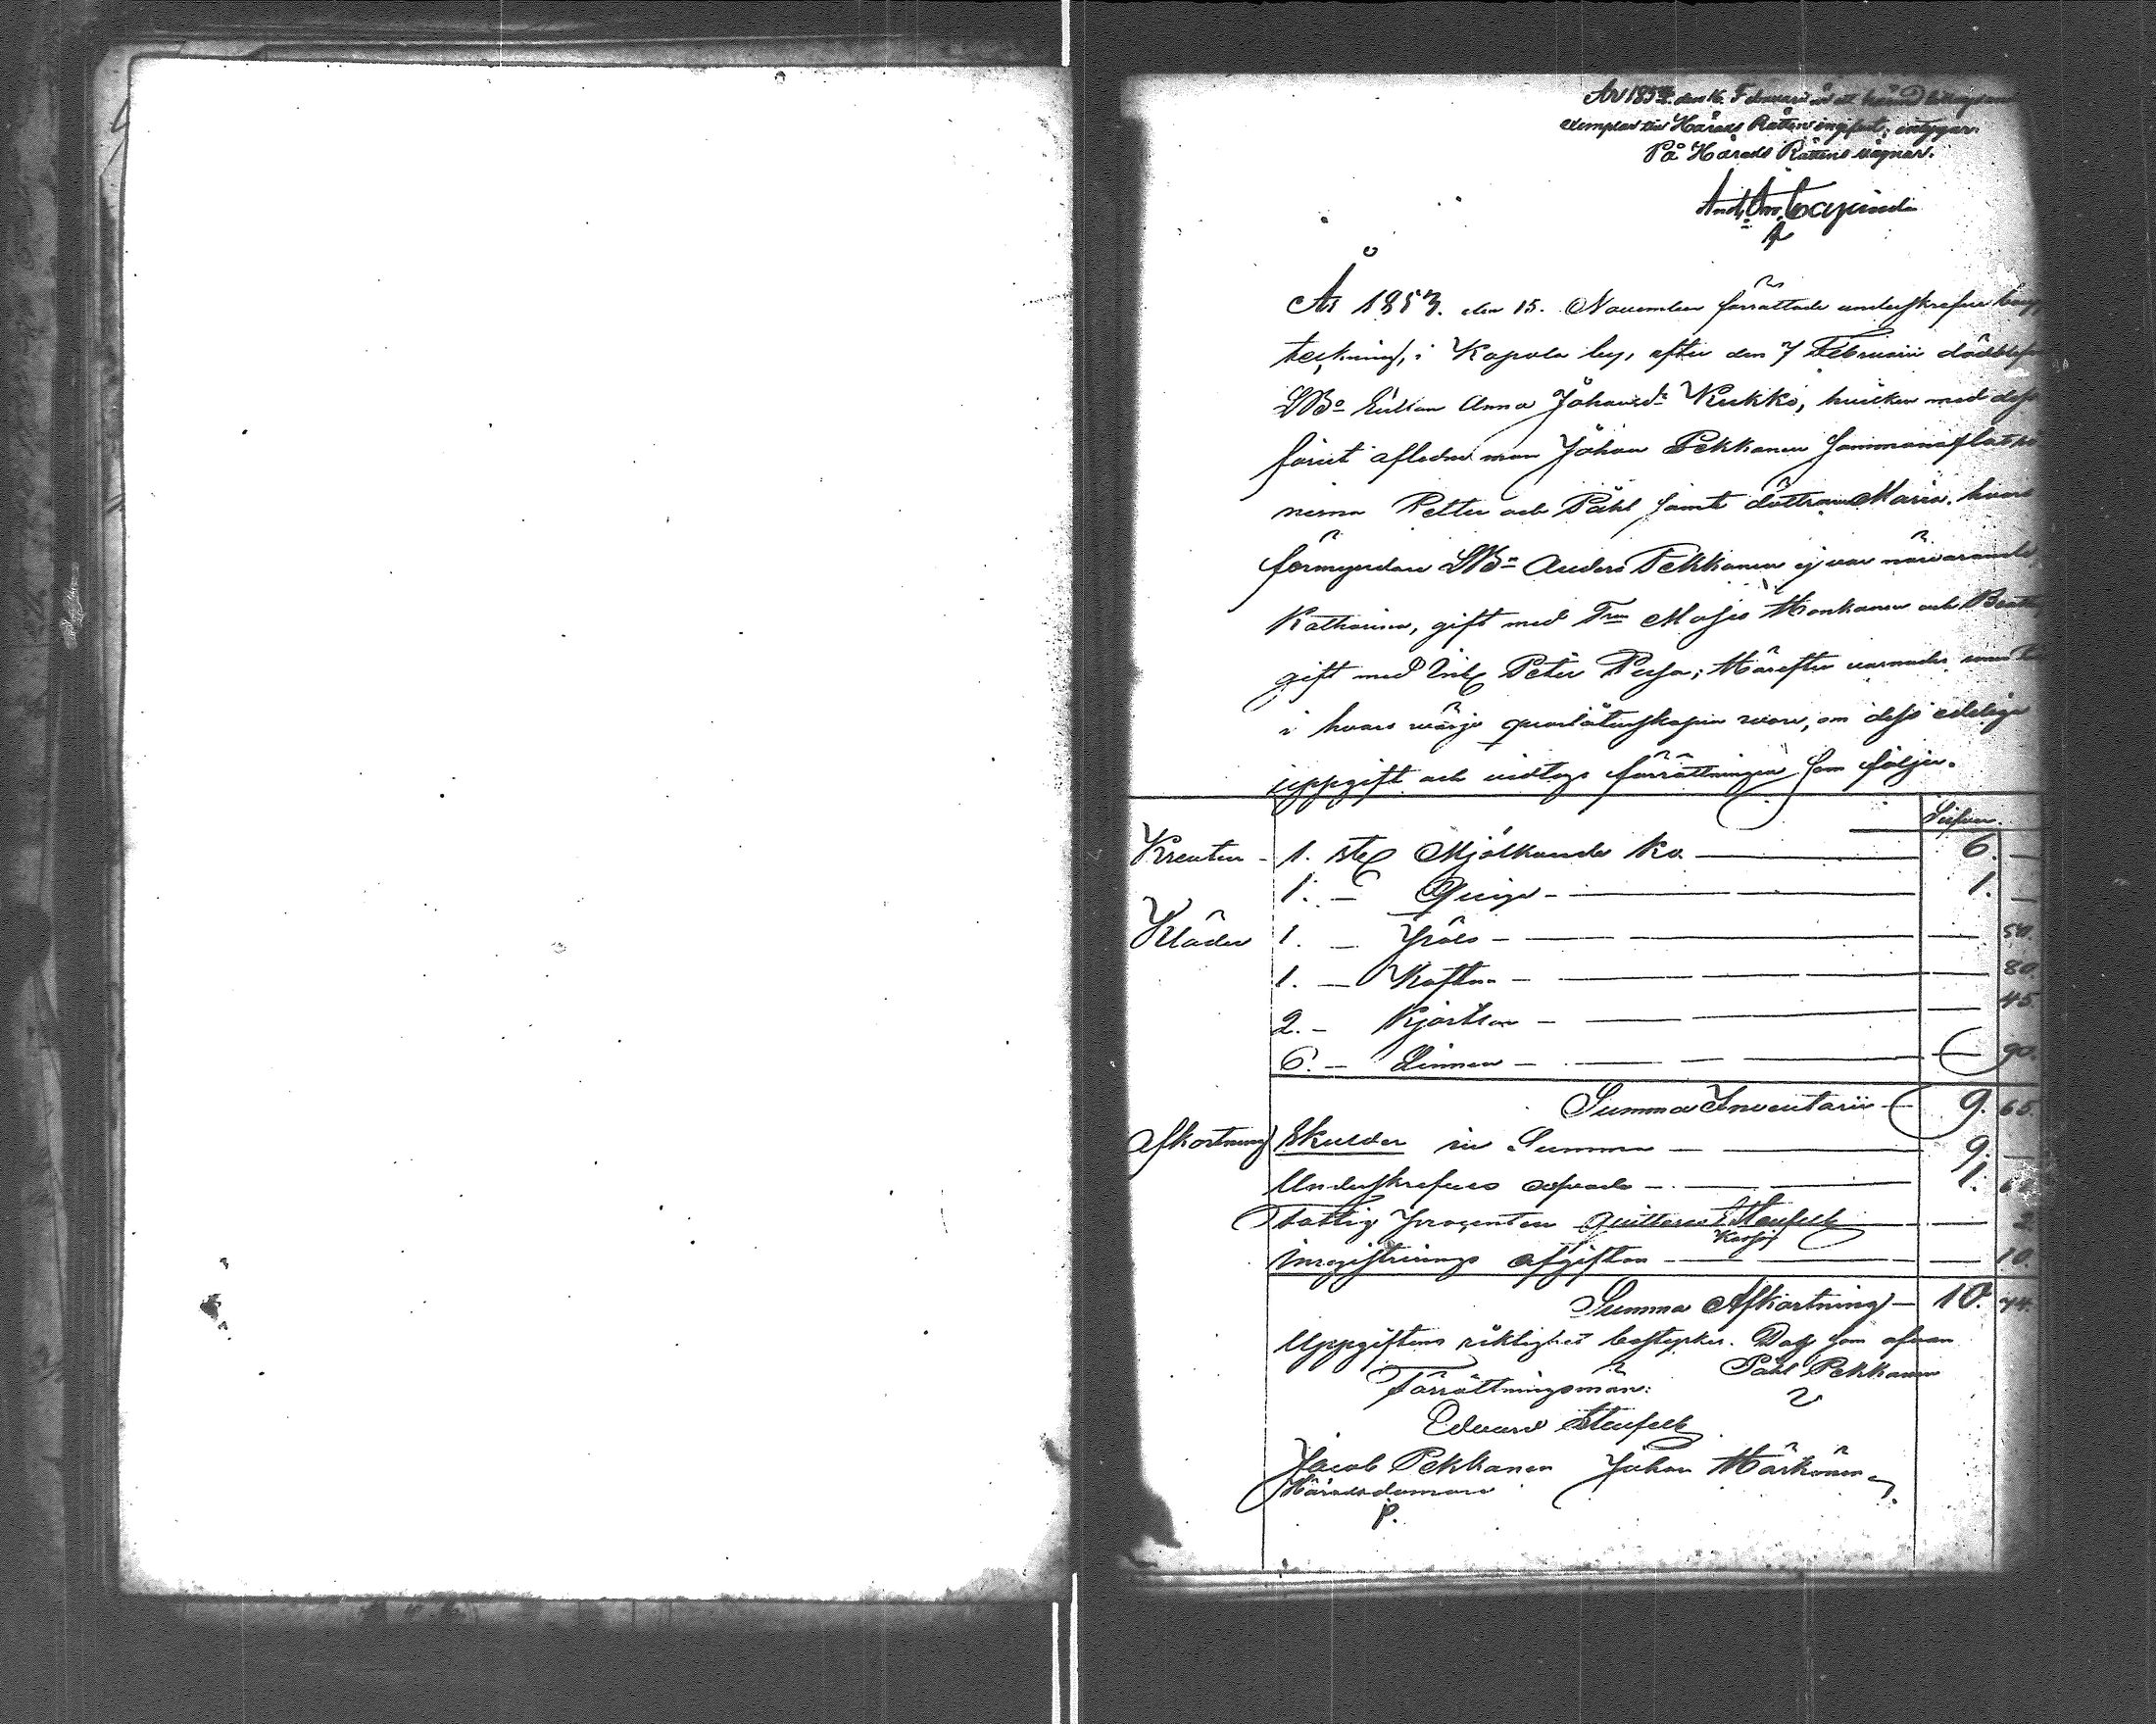 År 1854. den 16. Februari är ett härmed
exemplar till Härads Rätten ingifvit; intygar.
På Härads Rättens vägnar.
År 1853. den 15. November förrättade underskrefne boupp-
teckning, i Kapola by, efter den 7 Februarii dödblefne
LBo Enkan Anna Johansdr Kukko, hvilken med dess
förut afledne man Johan Pekkanen sammanaflat
nerna Petter och Påhl samt döttrarna Maria, hvars
förmyndare LBn Anders Pekkanen ej var närvarande,
Katharina, gift med Moses Monkanen och Beata
gift med Inh Peter Pesa; Härefter varnades
i hvars värjo qvarlåtenskapen varit, om dess edeliga
uppgift och vidtogs förrättningen som följer.
Silfver.
Kreatur - 1. st Mjölkande Ko — 6. —
1. — Quiga — 1. —
Kläder 1. — — 50.
1. — Koftan — 80.
2. — Kjortlar — 45.
6. — Linnen — 90.
Summa Inventarii — 9. 65.
Afkortning Skulder in Summa — 9. —
Underskrefnes arfvode — 1.
Fattig procenten quitteras E Staufelt — 2
Inregistrerings afgiften — 10.
Summa Afkortning — 10. 74.
Uppgiftens riktighet bestyrker. Dag som ofvan
Påhl Pekkanen
Förrättningsmän:
Edvard Staufelt
Jacob Pekkanen Johan Härkönen
Häradsdomare